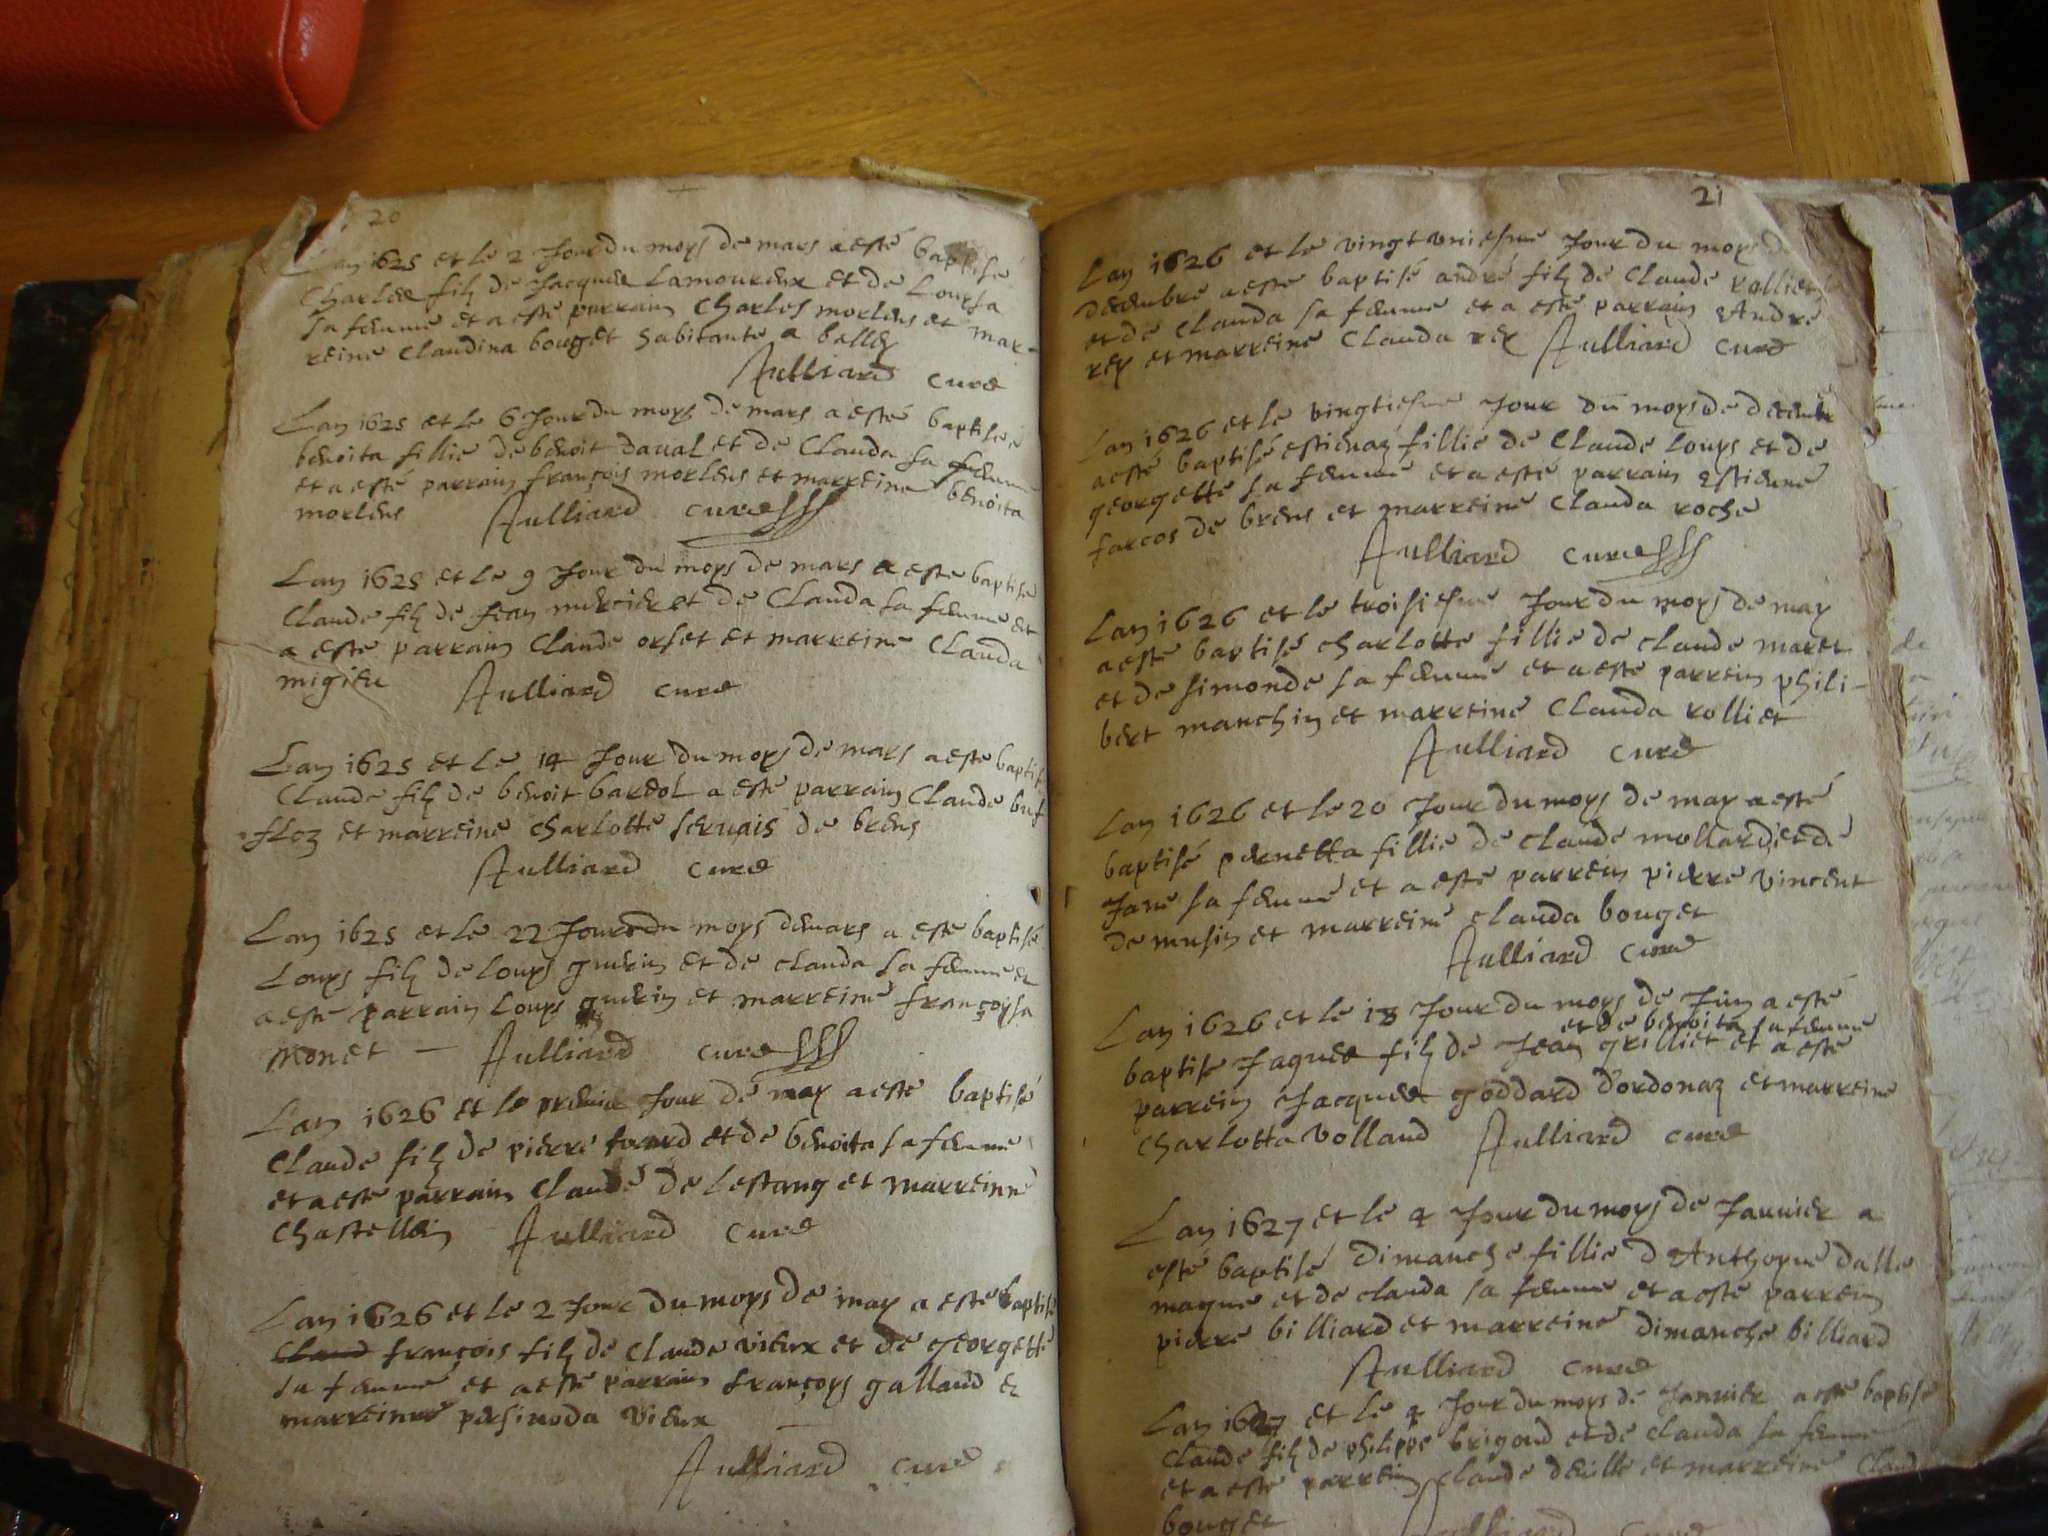 20
Lan 1625 et le 2 Jour du moys de mars a esté baptisé
Charlee filz de Jacquee Lamoureux et de Louysa
sa femme et a esté parrain Charles morlens et mar-
reine Claudina bouget habitante a belley
Julliard cure
Lan 1625 et le 6 Jour du moys de mars a esté baptisée
benoita fillie de benoit daval et de Clauda sa femme
et a esté parrain françois morlens et marreine benoita
morlens Julliard cure
Lan 1625 et le 9 Jour du moys de mars a este baptisé
Claude filz de Jean mercier et de Clauda sa femme et
a esté parrain Claude orset et marreine Clauda
migieu Julliard cure
Lan 1625 et le 14 Jour du moys de mars a este baptisé
Claude filz de benoit bareol a esté parrain Claude buf
floz et marreine Charlotte servais de brens
Julliard cure
Lan 1625 et le 22 Jour du moys de mars a esté baptisé
Louys filz de Louys guerin et de Clauda sa femme et
a esté parrain Louys guerin et marreine françoysa
monet — Julliard cure
Lan 1626 et le premier Jour de may a esté baptisé
Claude filz de pierre et de benoita sa femme
et a esté parrain Claude de Lestang et marreine
Chastellain Julliard cure
Lan 1626 et le 2 Jour du moys de may a esté baptisé
Claud françois filz de Claude vieux et de georgette
sa femme et a esté parrain françoys galland et
marreinne persinoda vieux
Julliard cure
21
Lan 1626 et le vingt uniesme Jour du moys de
decembre a esté baptisé andré filz de Claude rolliet
et de Clauda sa femme et a esté parrain André
rey et marreine Clauda rey Julliard cure
Lan 1626 et le vingtiesme Jour du moys de decembre
a esté baptisé estienaz fillie de Claude Louys et de
georgette sa femme et a esté parrain Estienne
farcos de brens et marreine Clauda roche
Julliard cure
Lan 1626 et le troisiesme Jour du moys de may
a esté baptisé Charlotte fillie de Claude maret
et de simonde sa femme et a este parrein phili-
bert manchin et marreine Clauda rolliet
Julliard cure
Lan 1626 et le 20 Jour du moys de may a esté
baptisé pernetta fillie de Claude mollard et de
Jane sa femme et a esté parrein pierre vincent
de musin et marreine Clauda bouget
Julliard cure
Lan 1626 et le 18 Jour du moys de Juin a esté
et de benoita sa femme
baptise Jaquee filz de Jean grilliet et a esté
parrein Jacquee goddard d'ordonaz et marreine
Charlotta Volland Julliard cure
Lan 1627 et le 4 Jour du moys de Janvier a
esté baptisé Dimanche fillie d'Anthoyne dalle
magne et de Clauda sa femme et a esté parrein
pierre billiard et marreine dimanche billiard
Julliard cure
Lan 1627 et le 4 Jour du moys de Janvier a esté baptisé
Claude filz de philippe brigoud et de Clauda sa femme
et a esté parrein Claude et marreine Clauda
bouget Julliard cure